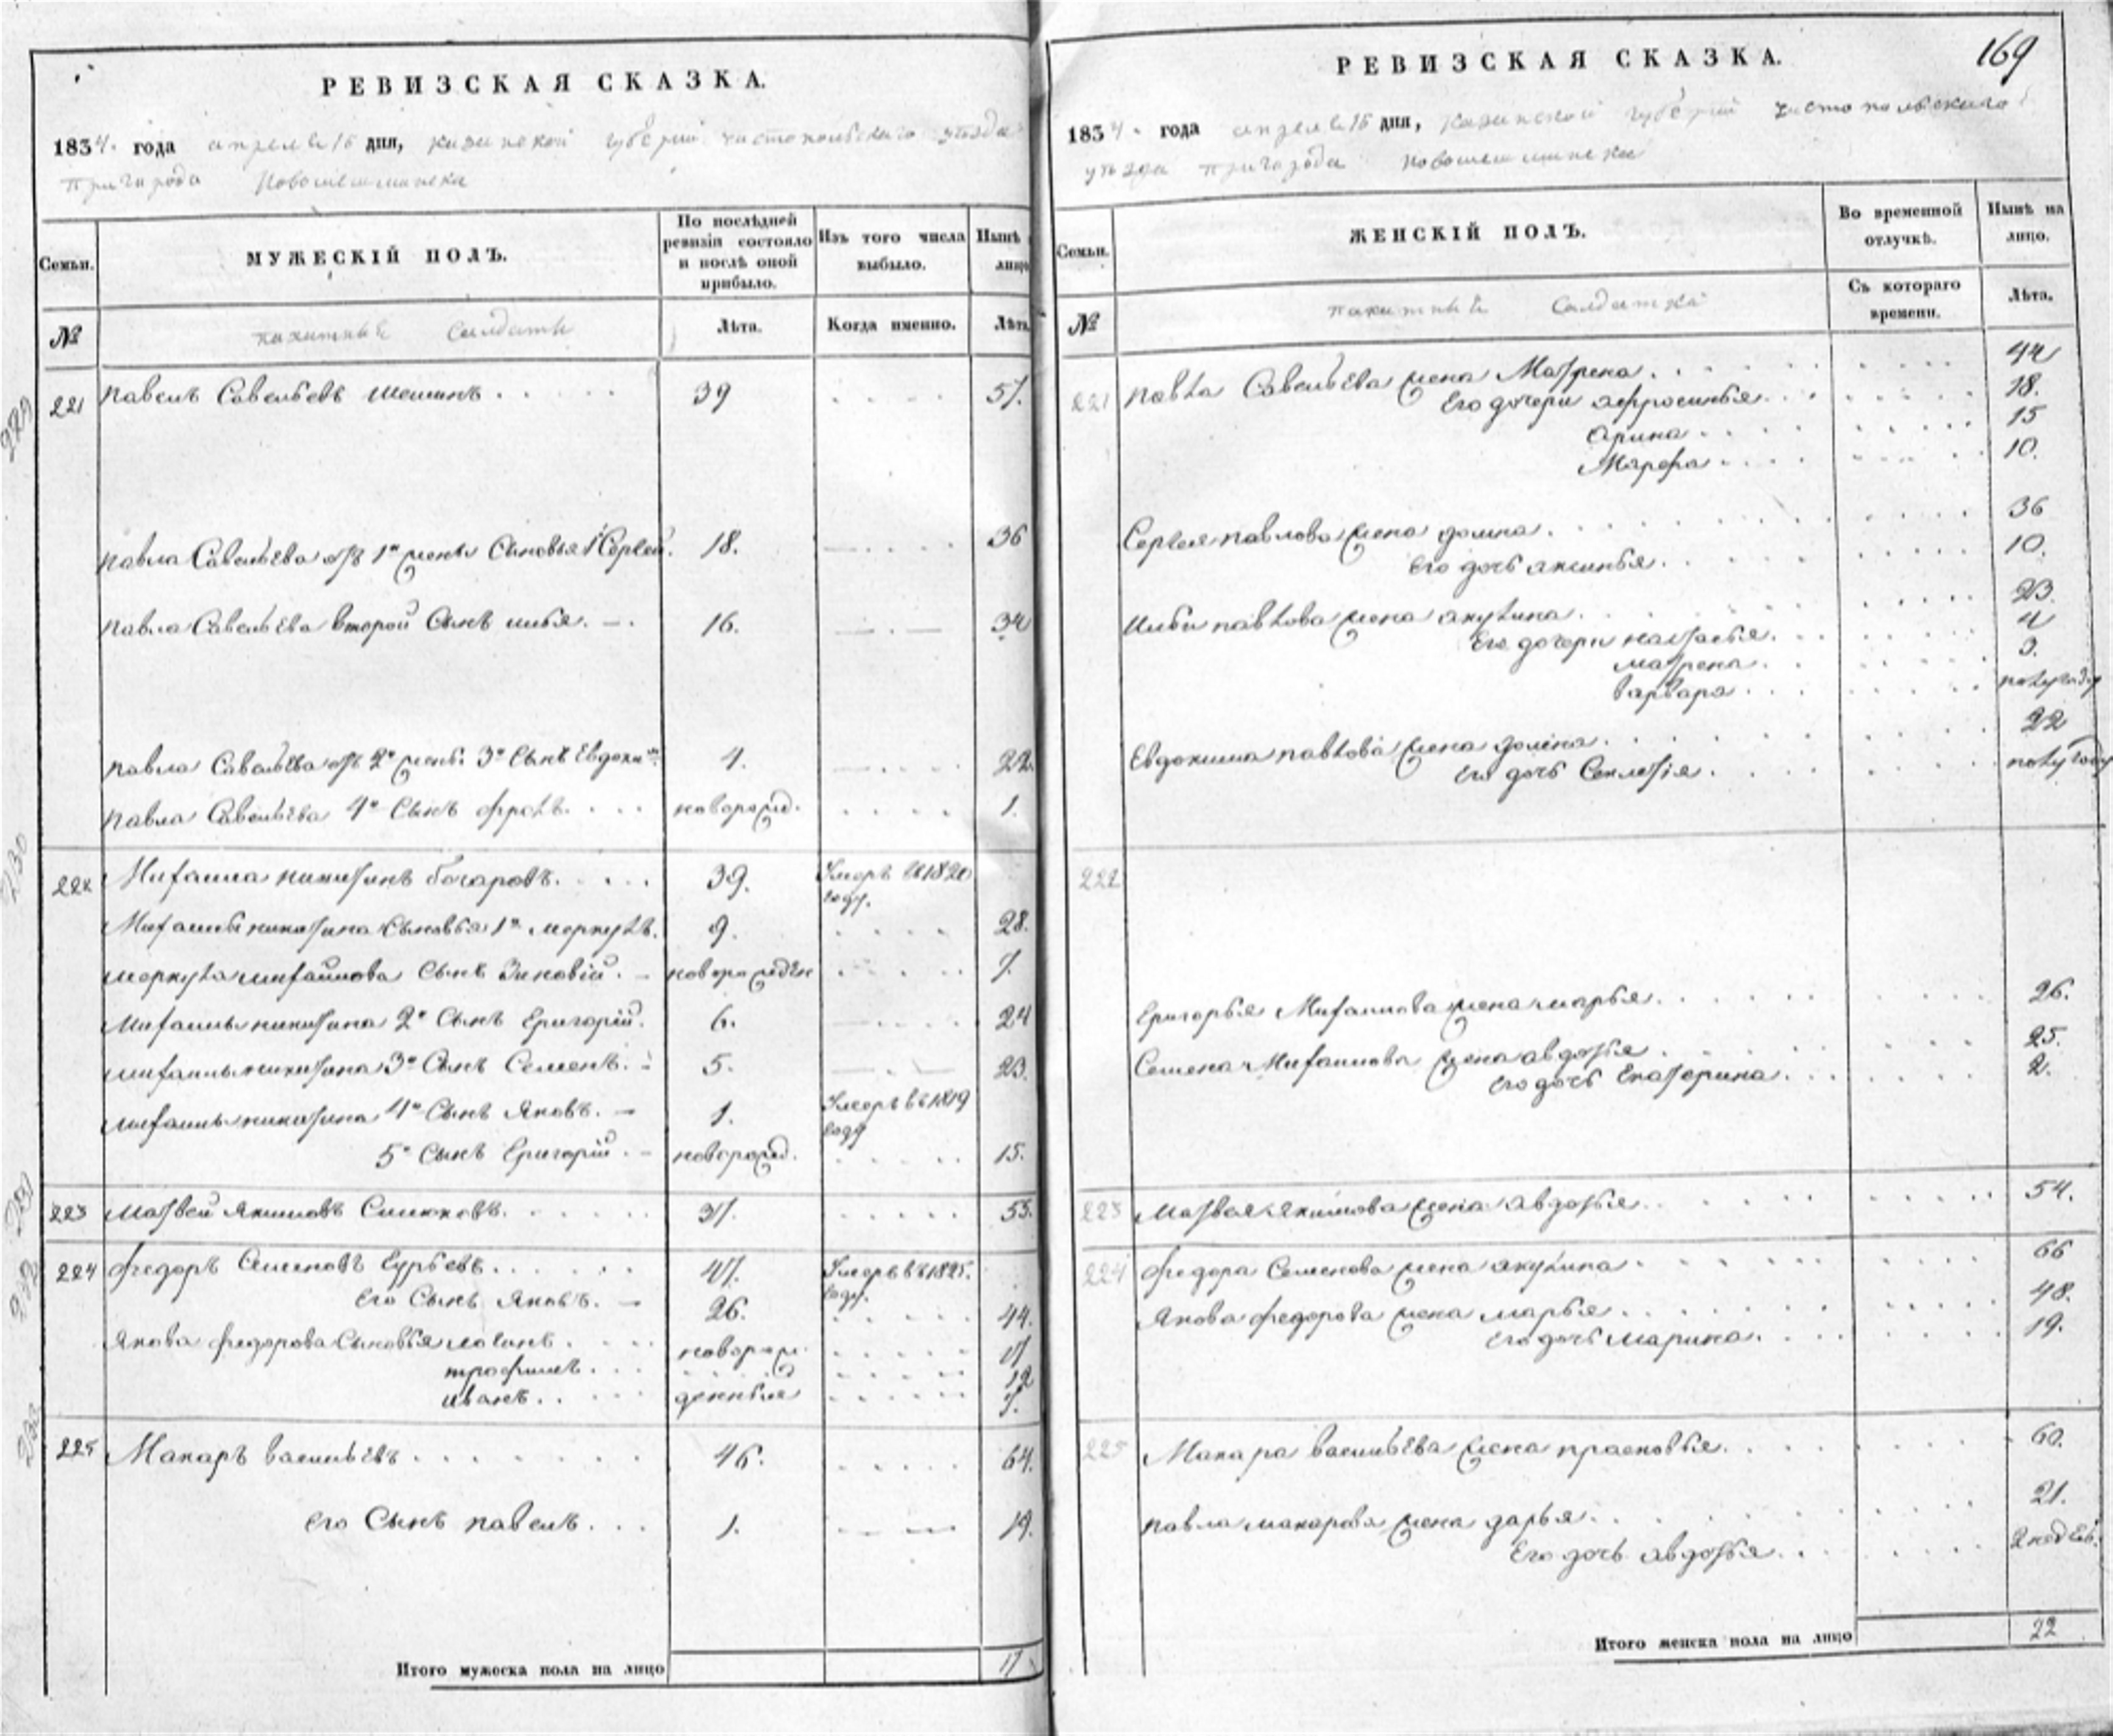 РЕВИЗСКАЯ СКАЗКА.
1834. года апреля 15 дня, казанской губернии чистопольского уезда
пригорода Новошешминска
Семьи.
МУЖЕСКІЙ ПОЛЪ.
По послѣдней ревизіи состояло и послѣ оной прибыло.
Изъ того числа выбыло.
Нынѣ на лицо
№
пахатные Салдаты
Лѣта.
Когда именно.
Лѣта
229
221 Павелъ Савельевъ Шешинъ . . . . . 39 . . . . 57.
Павла Савельева отъ 1й жены Сыновья 1 Сергей. 18. — . . . . 36
Павла Савельева второй Сынъ илья. — . 16. — . — 34
Павла Савельева отъ 2й жены 3й Сынъ Евдоким 4. — . . . . 22.
Павла Савельева 4й Сынъ фролъ. . . . новорожд. . . . . . 1.
230
222 Мифаила никитинъ бочаровъ. . . . . 39. Умеръ в 1820 году.
Мифаилы никитина Сыновья 1й меркулъ. 9. . . . . 28.
меркула мифаилова Сынъ Зиновій. — новорожден . . . . . 7.
Мифаилы никитина 2й Сынъ Григорій. 6. — . . . . 24
мифаилы никитина 3й Сынъ Семенъ. 5. — . — 23.
мифаилы никитина 4й Сынъ Яковъ. — 1. Умеръ въ 1819 году
5й Сынъ Григорій. — новорожд. . . . . . 15.
231
223 Матвей Якимовъ Симоковъ. . . . . . 37. . . . . . 55.
232
224 Федоръ Семеновъ Гурьевъ. . . . . . 47. Умеръ въ 1825. году.
Его Сынъ Яковъ. — 26. . . . . . 44.
Якова Федорова Сыновья логинъ . . . . новорож. . . . . . 17
трофимъ. . . . . . . . . . . . . 12
Иванъ. . . . . . . . . . 7.
233
225 Макаръ васильевъ . . . . . . . 46. . . . . . 64.
его Сынъ павелъ. . . . 1. — — — 19.
Итого мужеска пола на лицо 17
169
РЕВИЗСКАЯ СКАЗКА.
1834. года апреля 15 дня, казанской губерніи чистопольского
уезда пригорода Новошешминска
Семьи.
ЖЕНСКІЙ ПОЛЪ.
Во временной отлучкѣ.
Нынѣ на лицо.
№
пахатные Салдатка
Съ котораго времени.
Лѣта.
221 Павла Савельева жена Матрена. . . . . 44
Его дочери афросинья. . . . 18.
Арина. . . . . 15
Марфа. . . . . 10.
Сергея павлова жена домна. . . . . 36
Его дочь аксинья. . . . 10.
Ильи павлова жена акулина. . . . . 23.
Его дочери настасья. . . . 4
матрена. . . 3.
варвара. . . . полугоду
Евдокима павлова жена домна. . . . . 22
Его дочь Секлетія. . . . полугоду
222
Григорья Мифаилова жена марья. . . . . 26.
Семена Мифаилова жена авдотья. . . . 25.
Его дочь Екатерина. . . . 2.
223 Матвея Якимова жена авдотья. . . . . 54.
224 Федора Семенова жена акулина. . . . . 66
Якова Федорова жена марья. . . . . 48.
Его дочь марина. . . . . 19.
225 Макара васильева жена прасковья. . . . . 60.
Павла макарова жена дарья. . . . . 21.
Его дочь авдотья. . . . . 2 недель.
Итого женска пола на лицо 22